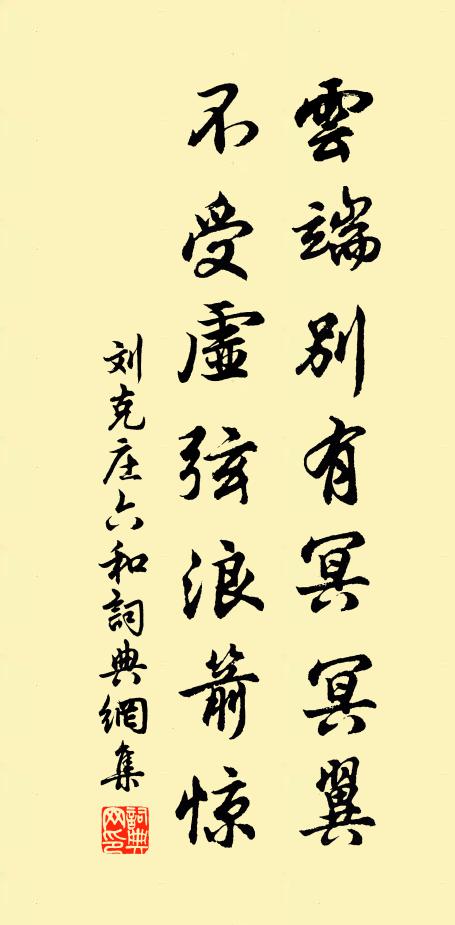 雲端別有冥冥翼
不受虛弦浪箭惊
刘克庄六和詞典網集
詞典网印